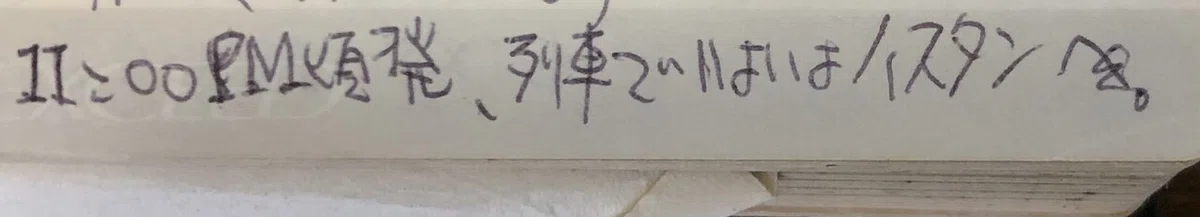 11:00PM頃発、列車でいよいよイスタンへ。